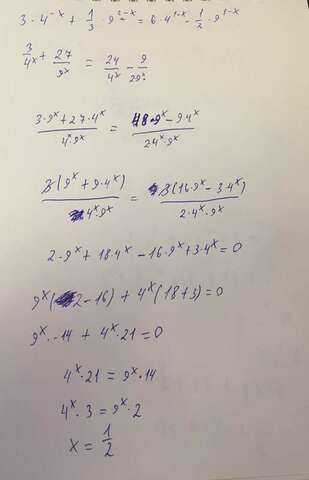 3 · 4^-x + 1/3 · 9^2-x = 6 · 4^1-x - 1/2 · 9^1-x
3/4^x + 27/9^x = 24/4^x - 9/29^x
3·9^x + 27·4^x / 4^x·9^x = 48·9^x - 9·4^x / 24^x·9^x
3(9^x + 9·4^x) / 4^x·9^x = 3(16·9^x - 3·4^x) / 2·4^x·9^x
2·9^x + 18·4^x - 16·9^x + 3·4^x = 0
9^x(2-16) + 4^x(18+3) = 0
9^x · -14 + 4^x · 21 = 0
4^x · 21 = 9^x · 14
4^x · 3 = 9^x · 2
x = 1/2